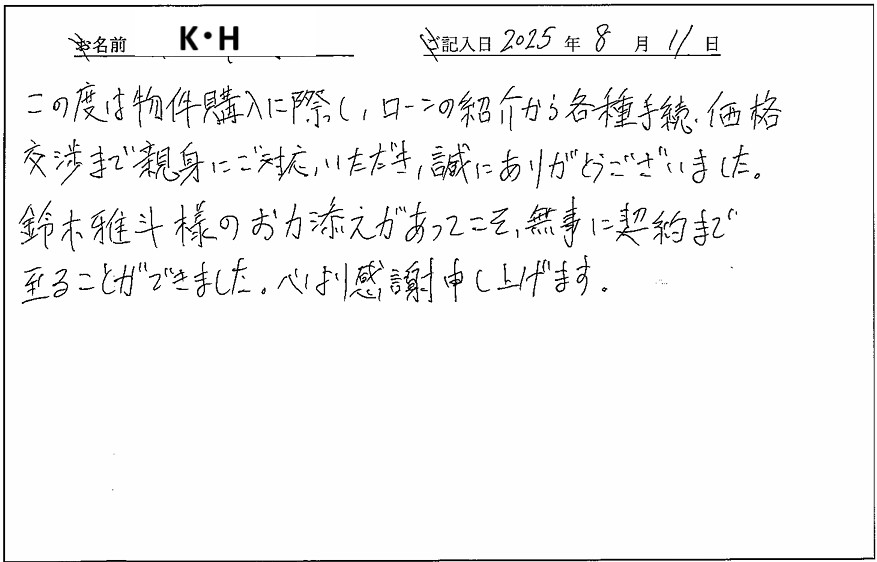 お名前 K・H ご記入日 2025 年 8 月 11 日
この度は物件購入に際し、ローンの紹介から各種手続、価格
交渉まで親身にご対応いただき、誠にありがとうございました。
鈴木雅斗様のお力添えがあってこそ、無事に契約まで
至ることができました。心より感謝申し上げます。